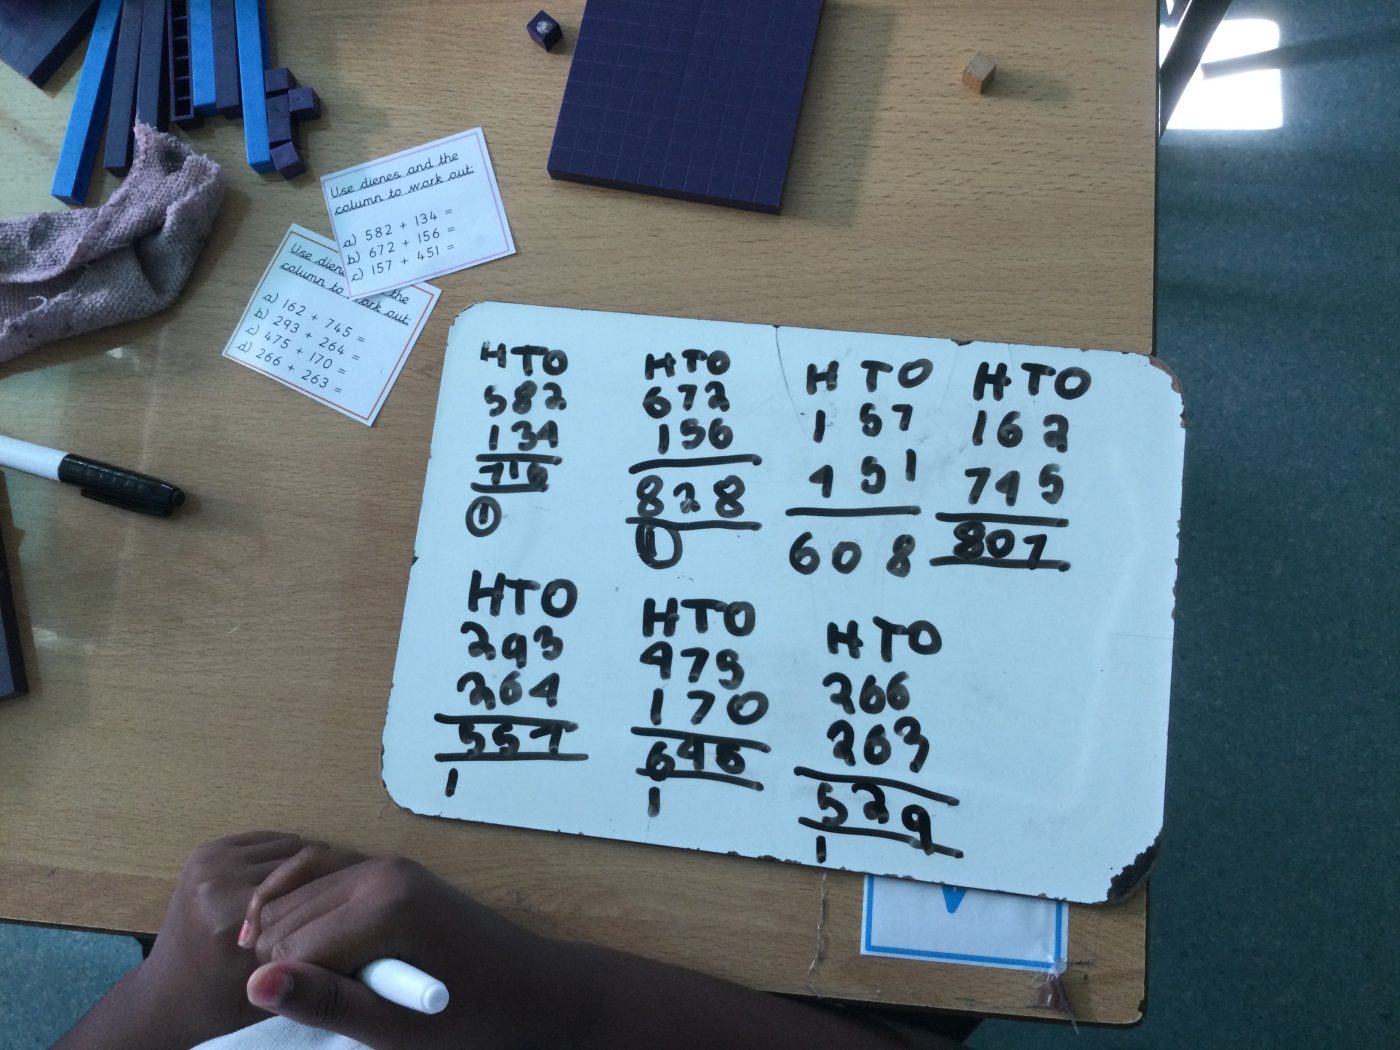 Use dienes and the
column to work out:
a) 582 + 134 =
b) 672 + 156 =
c) 157 + 451 =
Use dien the
column to work out:
a) 162 + 745 =
b) 293 + 264 =
c) 475 + 170 =
d) 266 + 263 =
HTO
582
134
716
1
HTO
672
156
828
1
HTO
157
451
608
HTO
162
745
807
HTO
293
264
557
1
HTO
475
170
646
1
HTO
266
263
529
1